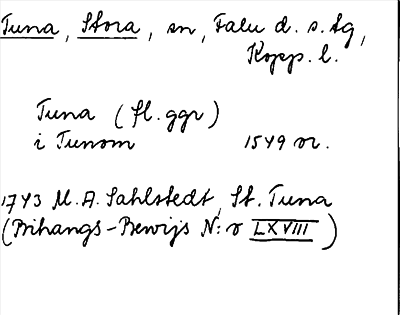 Tuna, Stora, sn, Falu d. s. tg,
Kopp. l.
Tuna (fl. ggr)
i Tunom 1549 or.
1743 M. A. Sahlstedt, St. Tuna
(Bihangs-Bewijs N:r LXVIII)